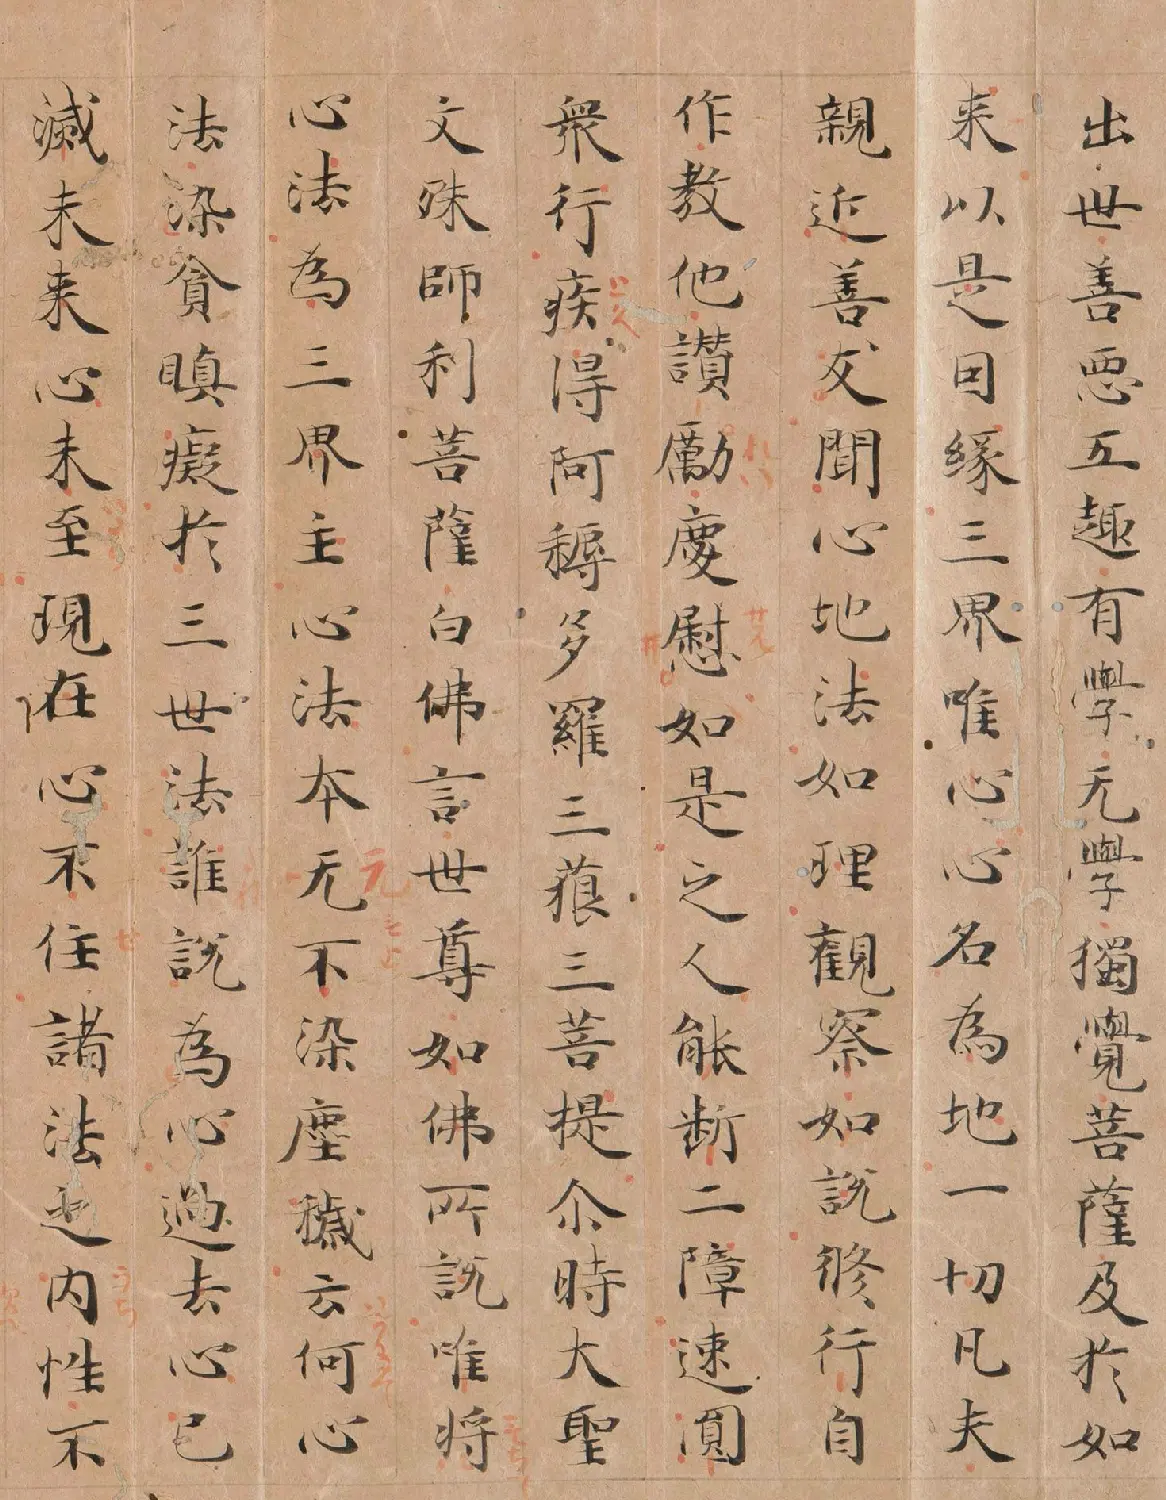 出世善惡五趣有學无學獨覺菩薩及於如
来以是因緣三界唯心心名為地一切凡夫
親近善友聞心地法如理觀察如說修行自
作教他讚勵慶慰如是之人能断二障速圓
衆行疾得阿耨多羅三藐三菩提尒時大聖
文殊師利菩薩白佛言世尊如佛所說唯将
心法為三界主心法本无不染塵穢云何心
法染貪瞋癡於三世法誰說為心過去心已
滅未来心未至現在心不住諸法之内性不